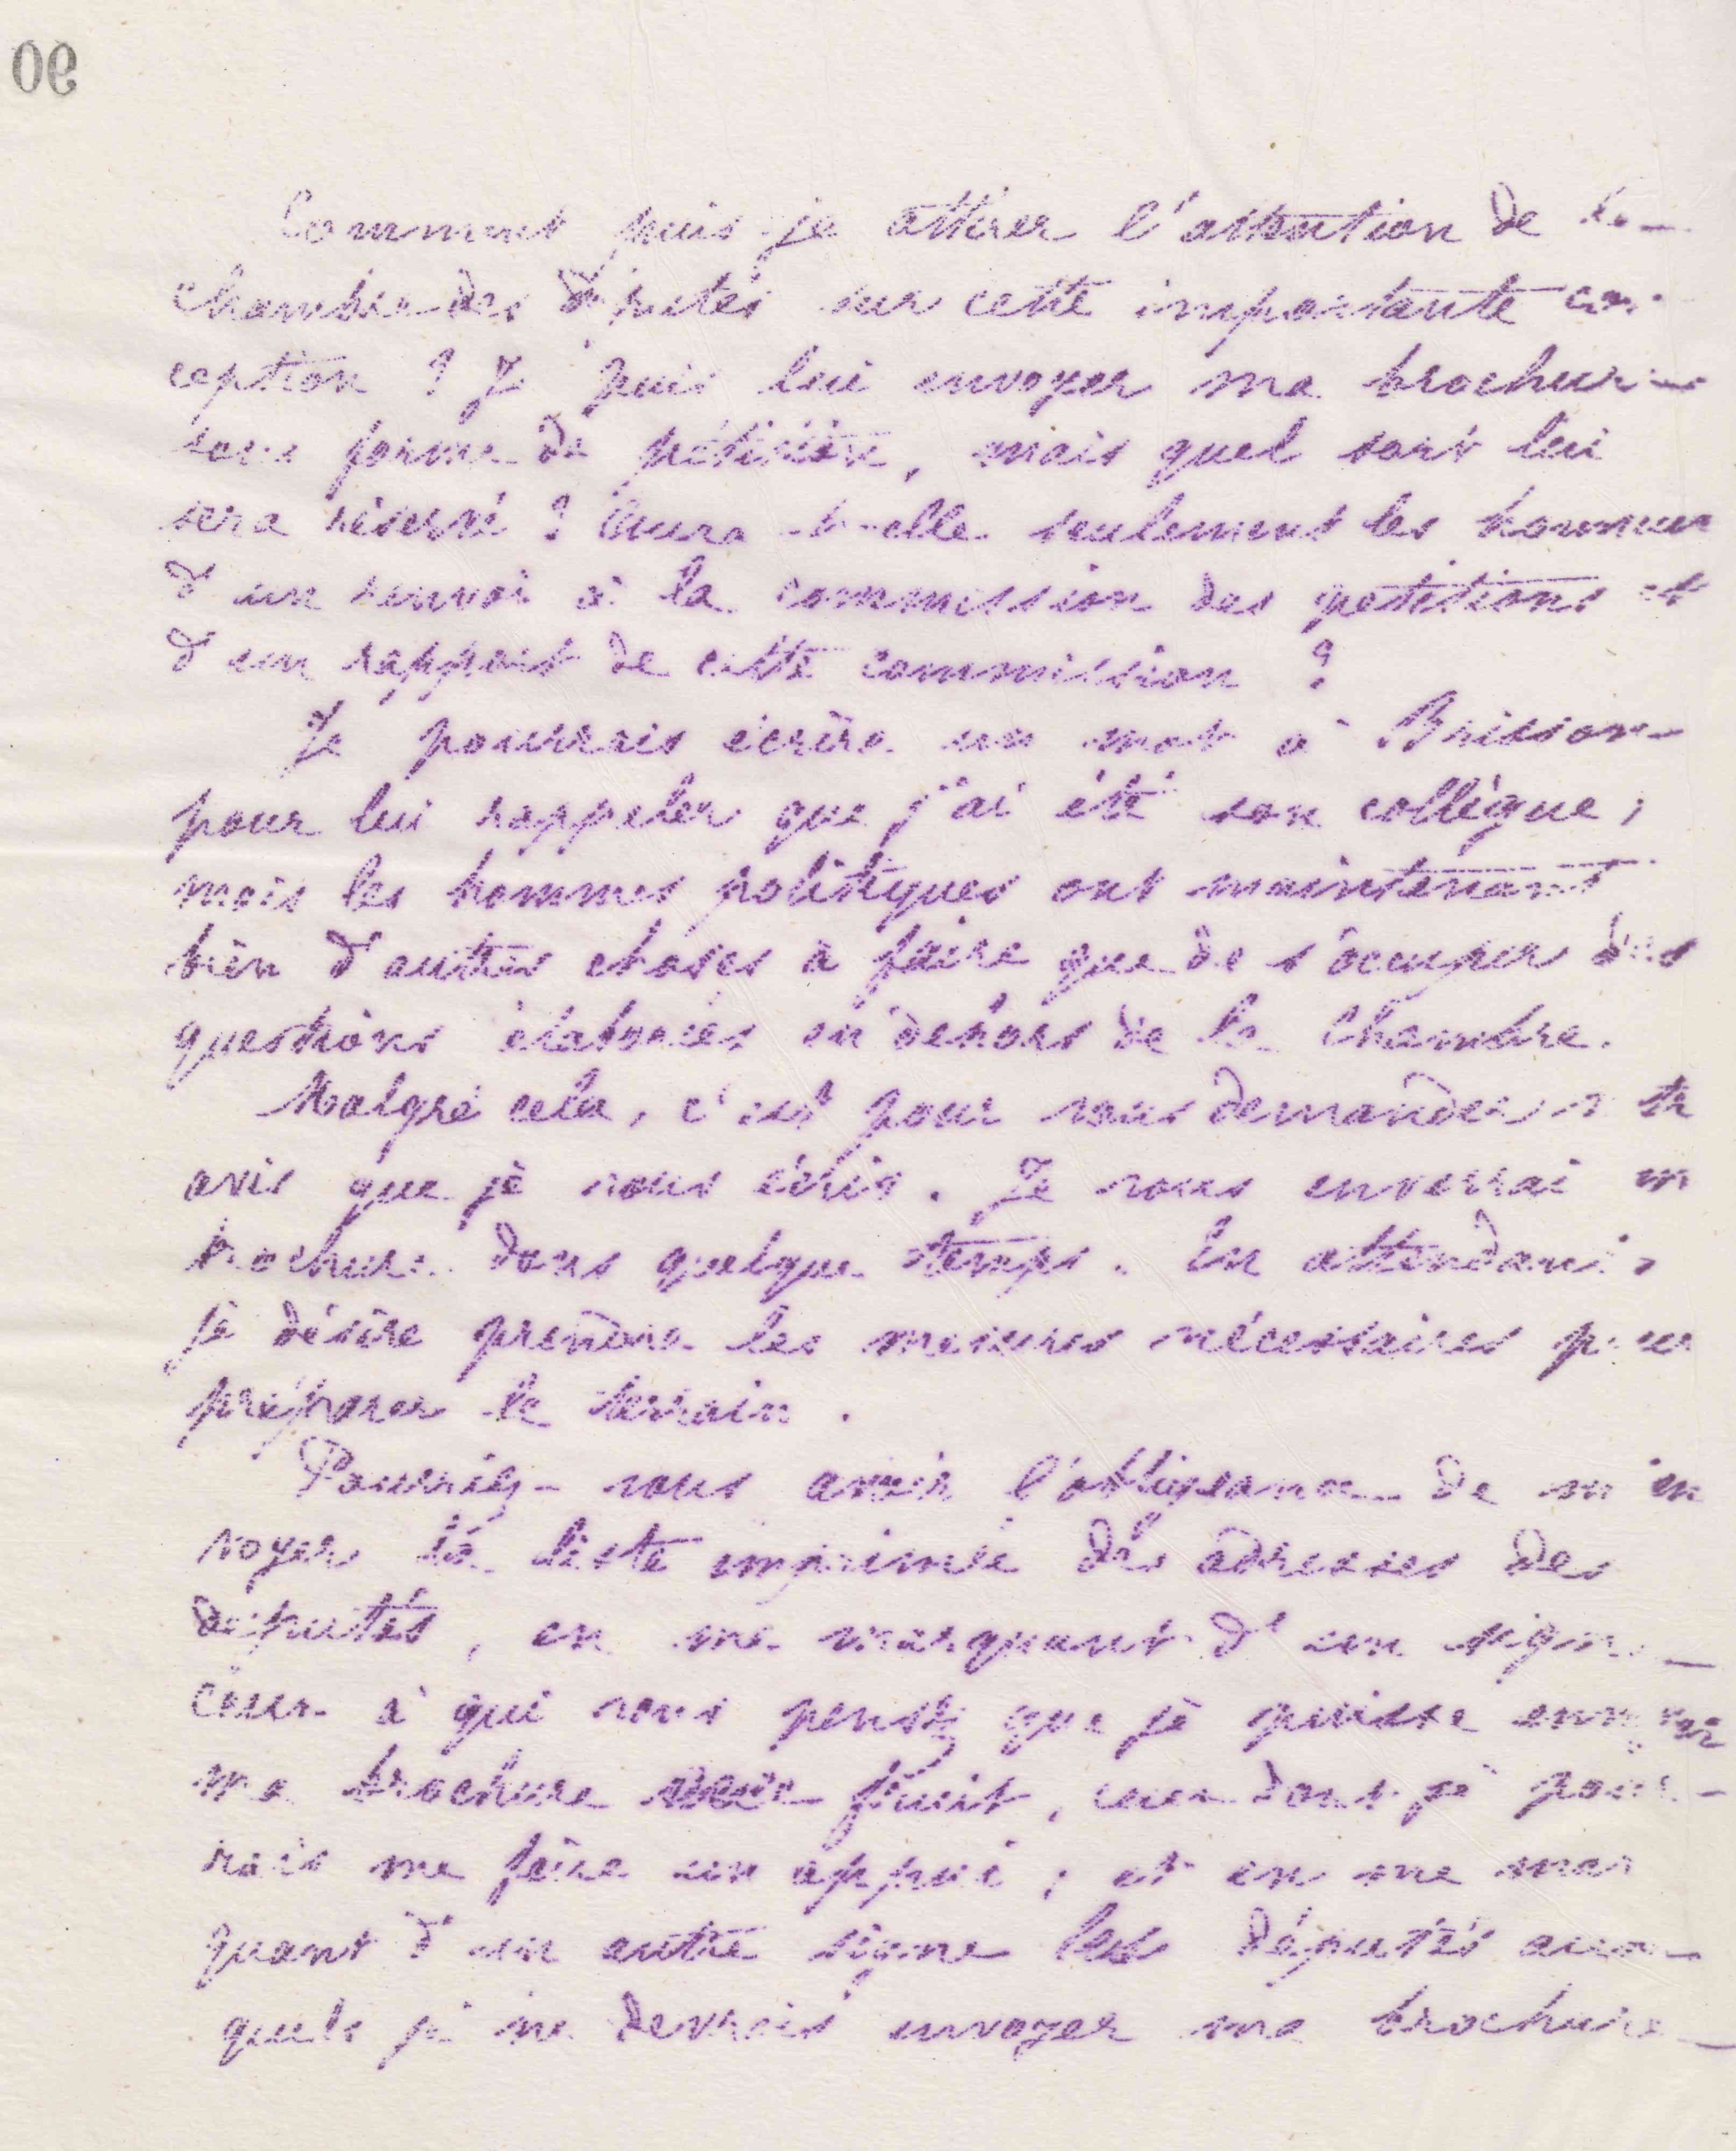 90
Comment puis-je attirer l'attention de la
chambre des députés sur cette importante con
ception ? Je puis lui envoyer ma brochure
sous forme de pétition, mais quel sort lui
sera réservé ? Aura-t-elle seulement les honneurs
d'un renvoi à la commission des pétitions et
d'un rapport de cette commission ?
Je pourrais écrire un mot à Brisson
pour lui rappeler que j'ai été son collègue,
mais les hommes politiques ont maintenant
bien d'autres choses à faire que de s'occuper des
questions élaborées en dehors de la Chambre.
Malgré cela, c'est pour vous demander votre
avis que je vous écris. Je vous enverrai ma
brochure dans quelque temps. En attendant,
je désire prendre les mesures nécessaires pour
préparer le terrain.
Pourriez-vous avoir l'obligeance de m'en
voyer la liste imprimée des adresses des
députés, en me marquant d'un signe
ceux à qui vous pensez que je puisse envoyer
ma brochure avec fruit, ceux dont je pour-
rais me faire un appui ; et en me mar
quant d'un autre signe les députés aux
quels je ne devrais envoyer ma brochure